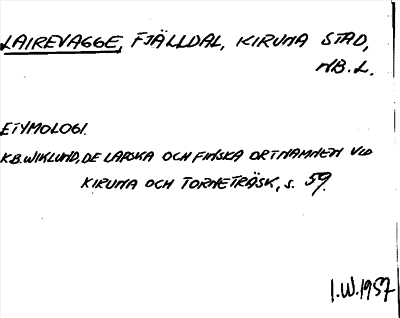 LAIREVAGGE, FJÄLLDAL, KIRUNA STAD,
NB.L.
ETYMOLOGI.
K.B.WIKLUND, DE LAPSKA OCH FINSKA ORTNAMNEN VID
KIRUNA OCH TORNETRÄSK, s. 59.
I.W.1957